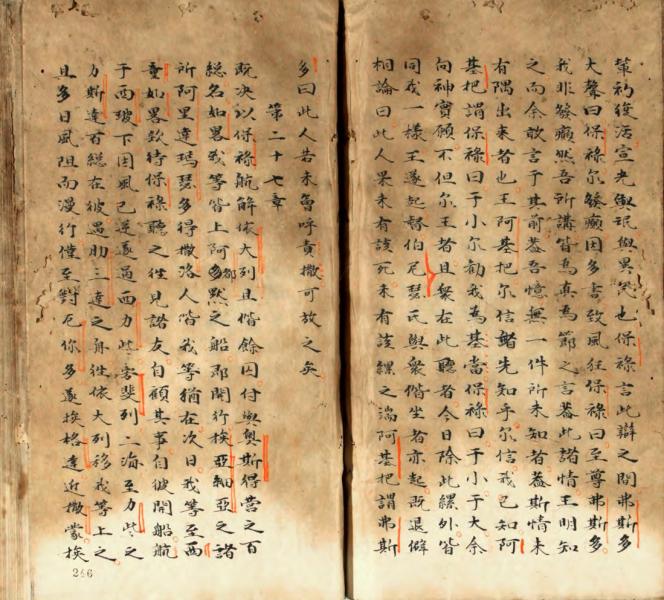 輩初復活宣光與珉與異民也保祿言此辯之間弗斯多
大聲曰保祿尔發癲因多書致風狂保祿曰至尊弗斯多
我非發癲然吾所講皆為真為節之言蓋此諸情王明知
之而余敢言于其前蓋吾憶無一件所未知者蓋斯情未
有隅出來者也王阿基把尔信諸先知乎尔信我已知阿
基把謂保祿曰于小尔勸我為基當保祿曰于小于大余
向神實願不但尔王者且衆在此聽者今日除此縲外皆
同我一樣王遂起督伯尼瑟氏與衆偕坐者亦起既退僻
相論曰此人果未有該死未有該縲之端阿基把謂弗斯
多曰此人若未曾呼責撒可放之矣
第二十七章
既決以保祿航解依大列且偕餘囚付與奧斯得營之百
総名如畧我等皆上阿多郡默之船即開行挨亞細亞之諸
所阿里達瑪瑟多得撒洛人偕我等猶在次日我等至西
童如畧欵待保祿聽之往見諸友自顧其事自彼開船航
于西玻下因風已逆遂過西力些旁斐列二海至力些之
力斯達百総在彼遇肋三達之舟往依大列移我等上之
且多日風阻而漫行僅至對厄你多遂挨格達近撒蒙挨
246